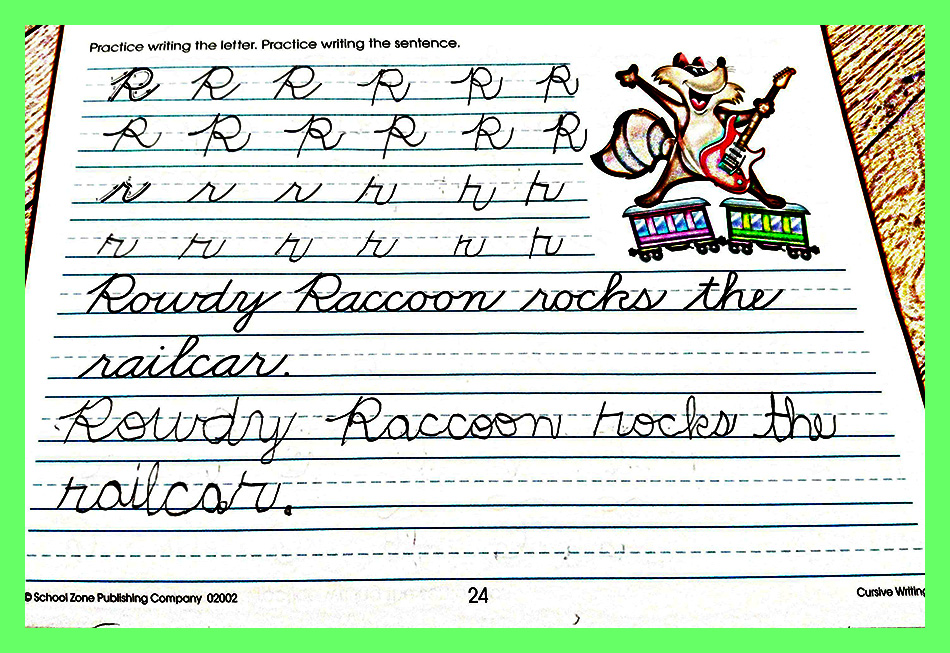 Practice writing the letter. Practice writing the sentence.
R R R R R R
R R R R R R
r r r r r r
r r r r r r
Rowdy Raccoon rocks the
railcar.
Rowdy Raccoon rocks the
railcar.
© School Zone Publishing Company 02002 24 Cursive Writing